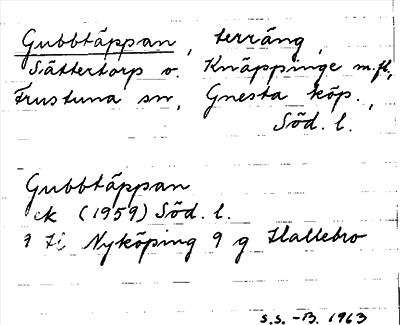 Gubbtäppan, terräng,
Sättertorp o. Knäppinge m.fl.,
Frustuna sn, Gnesta köp.,
Söd. l.
Gubbtäppan
ek (1959) Söd. l.
9 Hi Nyköping 9 g Hallebro
S.S. -B. 1963